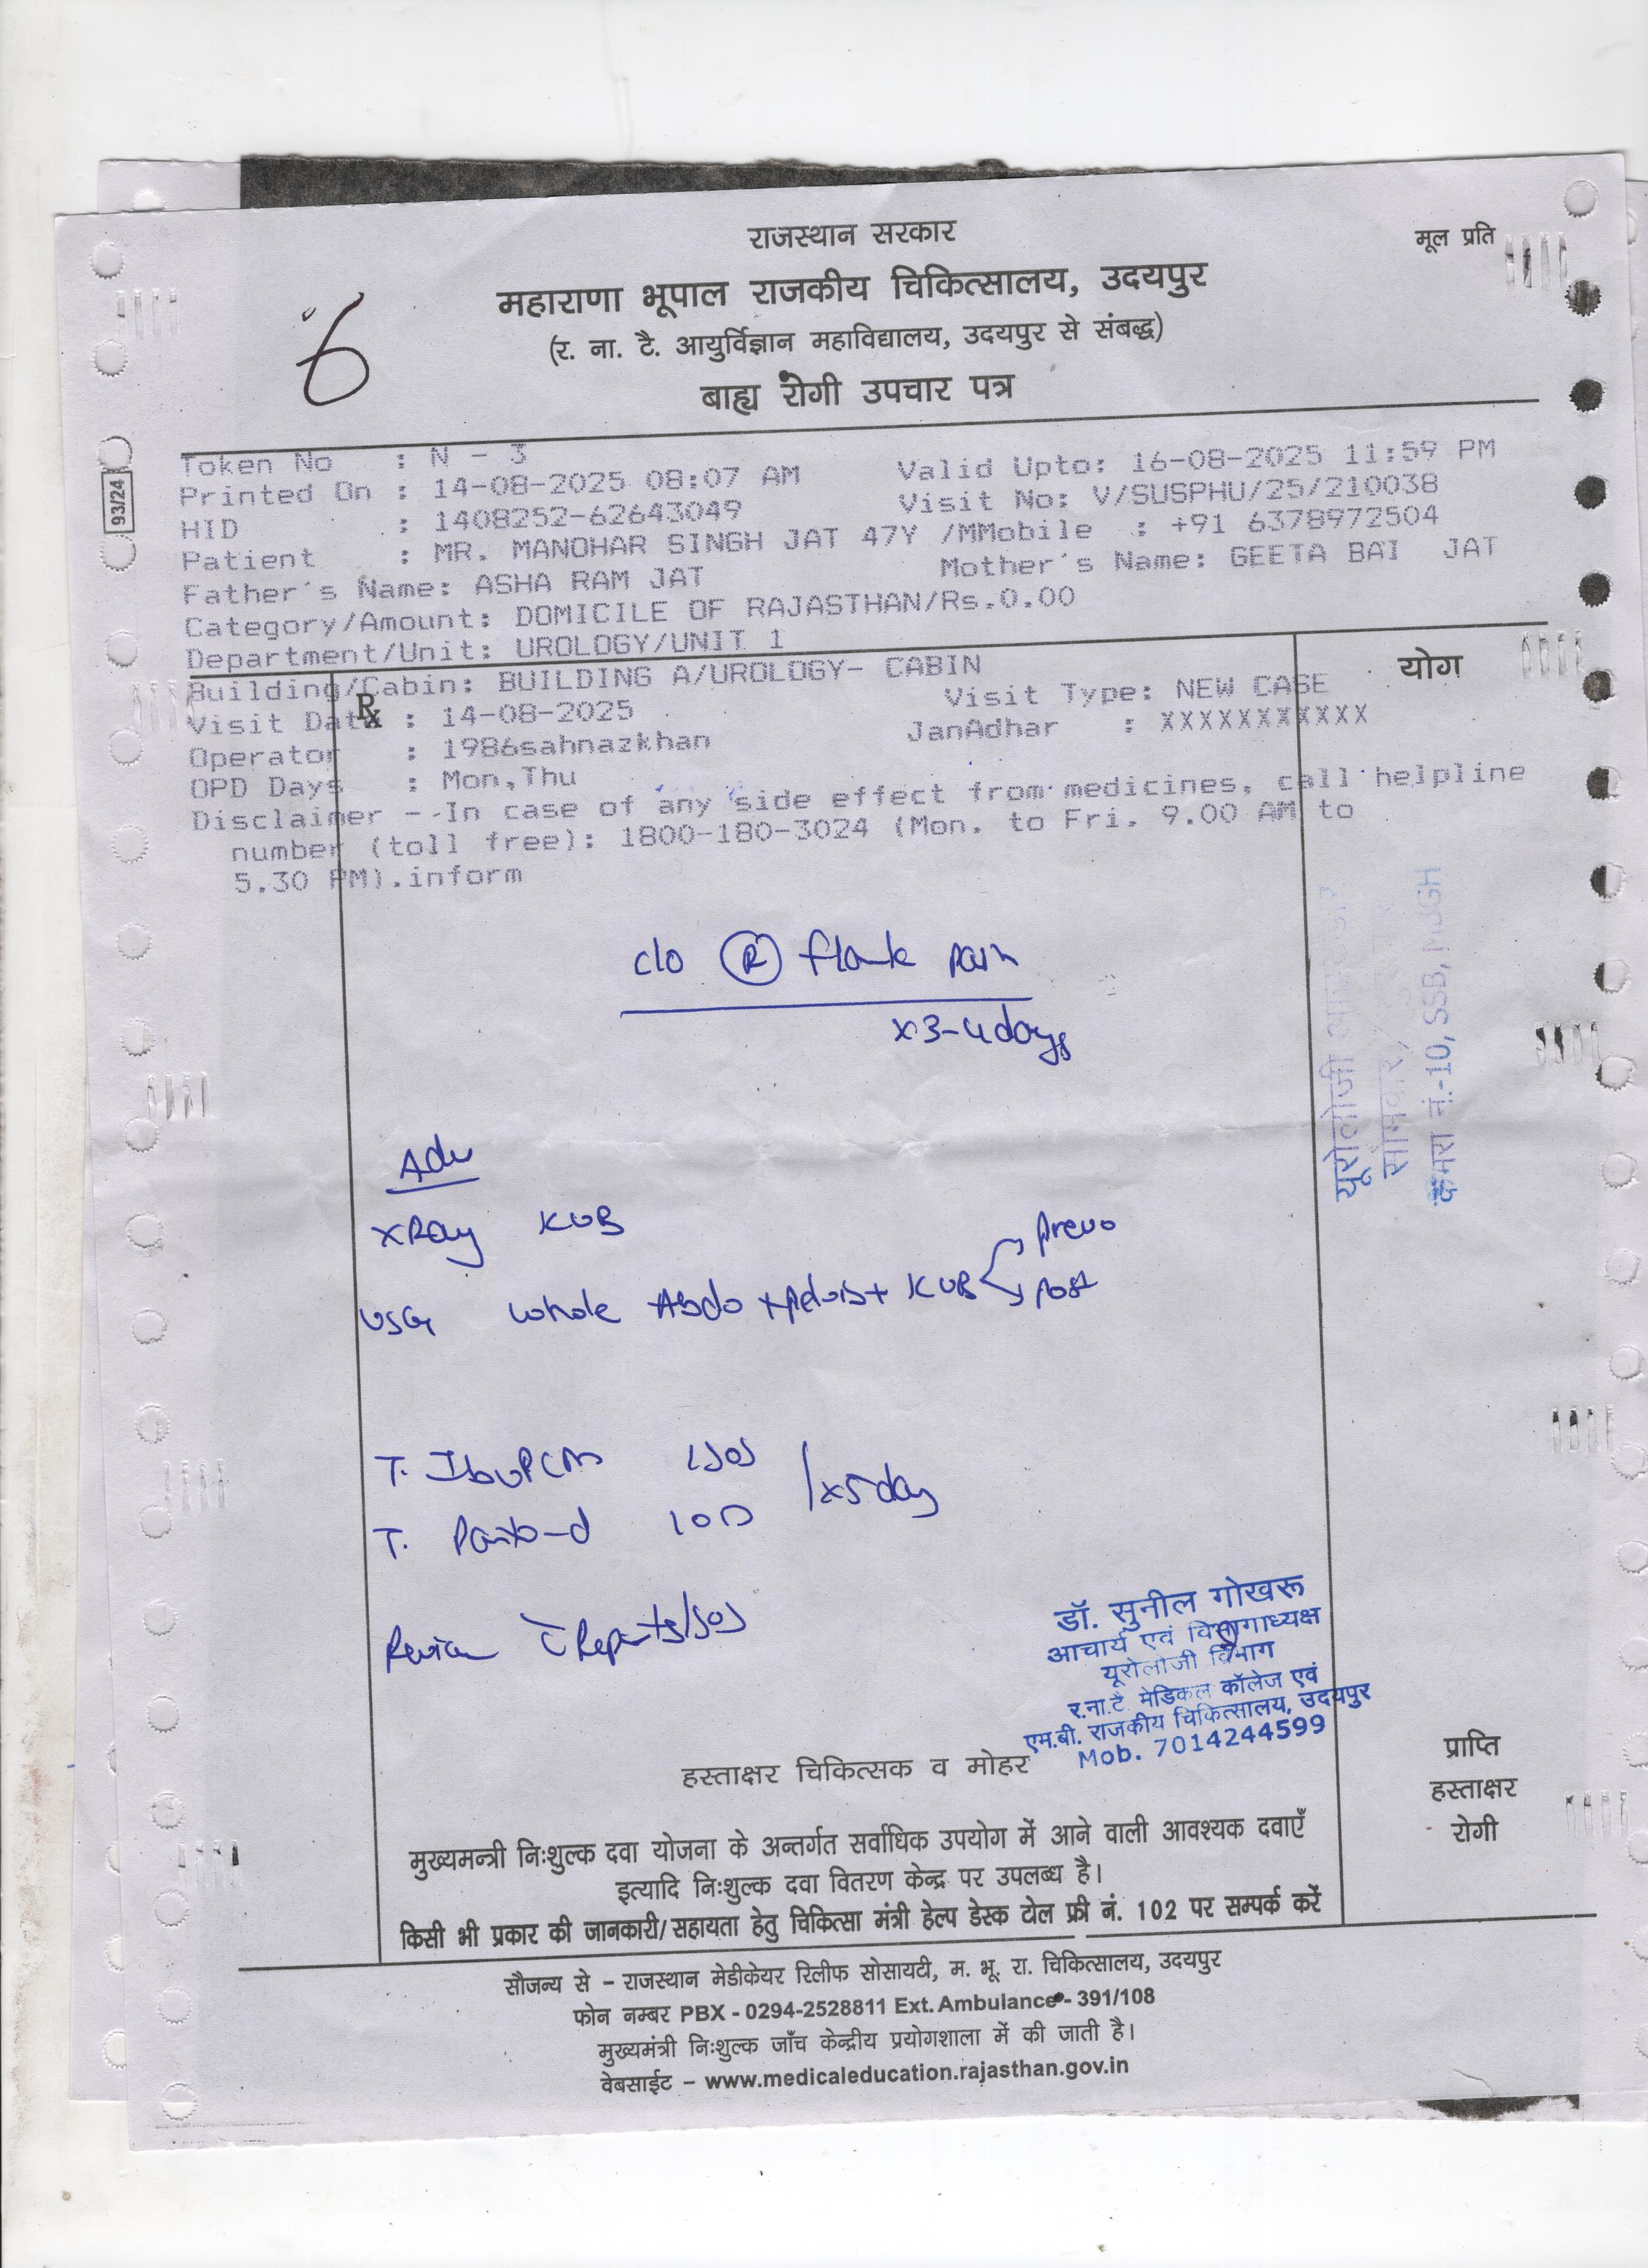 राजस्थान सरकार
मूल प्रति
महाराणा भूपाल राजकीय चिकित्सालय, उदयपुर
(र. ना. टै. आयुर्विज्ञान महाविद्यालय, उदयपुर से संबद्ध)
बाह्य रोगी उपचार पत्र
6
93/24
Token No : N - 3
Printed On : 14-08-2025 08:07 AM Valid Upto: 16-08-2025 11:59 PM
HID : 1408252-62643049 Visit No: V/SUSPHU/25/210038
Patient : MR. MANOHAR SINGH JAT 47Y /MMobile : +91 6378972504
Father's Name: ASHA RAM JAT Mother's Name: GEETA BAI JAT
Category/Amount: DOMICILE OF RAJASTHAN/Rs.0.00
Department/Unit: UROLOGY/UNIT 1
Building/Cabin: BUILDING A/UROLOGY- CABIN
Visit Date : 14-08-2025 Visit Type: NEW CASE
Operator : 1986sahnazkhan JanAdhar : XXXXXXXXXXX
OPD Days : Mon,Thu
Disclaimer --In case of any side effect from medicines, call helpline
number (toll free): 1800-180-3024 (Mon. to Fri. 9.00 AM to
5.30 PM).inform
Rx
योग
c/o (R) flank pain
x3-4days
यूरोलोजी
सोमवार,
कमरा नं.-10, SSB,
Adv
XRay KUB
USG whole Abdo + Pelvis + KUB
prevo
post
T. IbuPCM 1SOS
T. Panto-d 1OD
x5day
Review c̄ Reports/SOS
डॉ. सुनील गोखरू
आचार्य एवं विभागाध्यक्ष
यूरोलोजी विभाग
र.ना.टै. मेडिकल कॉलेज एवं
एम.बी. राजकीय चिकित्सालय, उदयपुर
Mob. 7014244599
हस्ताक्षर चिकित्सक व मोहर
प्राप्ति
हस्ताक्षर
रोगी
मुख्यमन्त्री निःशुल्क दवा योजना के अन्तर्गत सर्वाधिक उपयोग में आने वाली आवश्यक दवाएँ
इत्यादि निःशुल्क दवा वितरण केन्द्र पर उपलब्ध है।
किसी भी प्रकार की जानकारी/सहायता हेतु चिकित्सा मंत्री हेल्प डेस्क टोल फ्री नं. 102 पर सम्पर्क करें
सौजन्य से – राजस्थान मेडीकेयर रिलीफ सोसायटी, म. भू. रा. चिकित्सालय, उदयपुर
फोन नम्बर PBX - 0294-2528811 Ext. Ambulance - 391/108
मुख्यमंत्री निःशुल्क जाँच केन्द्रीय प्रयोगशाला में की जाती है।
वेबसाईट – www.medicaleducation.rajasthan.gov.in